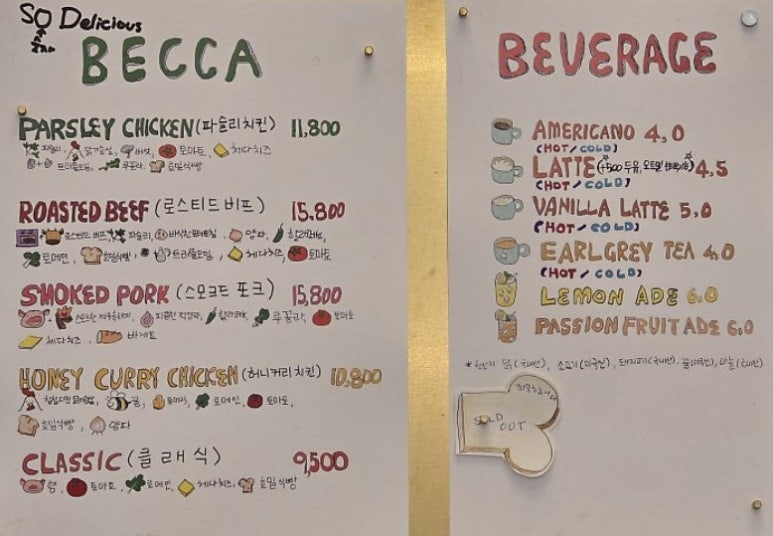 SO Delicious
BECCA
PARSLEY CHICKEN (파슬리치킨) 11,800
파슬리, 닭가슴살, 버섯, 토마토, 체다치즈
루꼴라, 호밀식빵
ROASTED BEEF (로스티드비프) 15,800
로스티드 비프, 파슬리, 양파, 할라피뇨,
로메인, 호밀식빵, 체다치즈, 토마토
SMOKED PORK (스모크드 포크) 15,800
할라피뇨, 루꼴라, 토마토
체다치즈, 바게트
HONEY CURRY CHICKEN (허니커리치킨) 10,800
꿀, 로메인, 토마토,
호밀식빵, 양파
CLASSIC (클래식) 9,500
햄, 토마토, 로메인, 체다치즈, 호밀식빵
BEVERAGE
AMERICANO 4,0
(HOT/COLD)
LATTE (+500 두유, 오트밀) 4,5
(HOT/COLD)
VANILLA LATTE 5,0
(HOT/COLD)
EARLGREY TEA 4,0
(HOT/COLD)
LEMON ADE 6.0
PASSION FRUIT ADE 6.0
*원산지 닭(국내산), 소고기(미국산), 돼지고기(국내산)
SOLD OUT